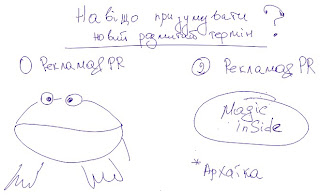 Навіщо придумувати
новий розмитий термін ?
① Реклама з PR
② Реклама з PR
Magic
inside
*Архаїка